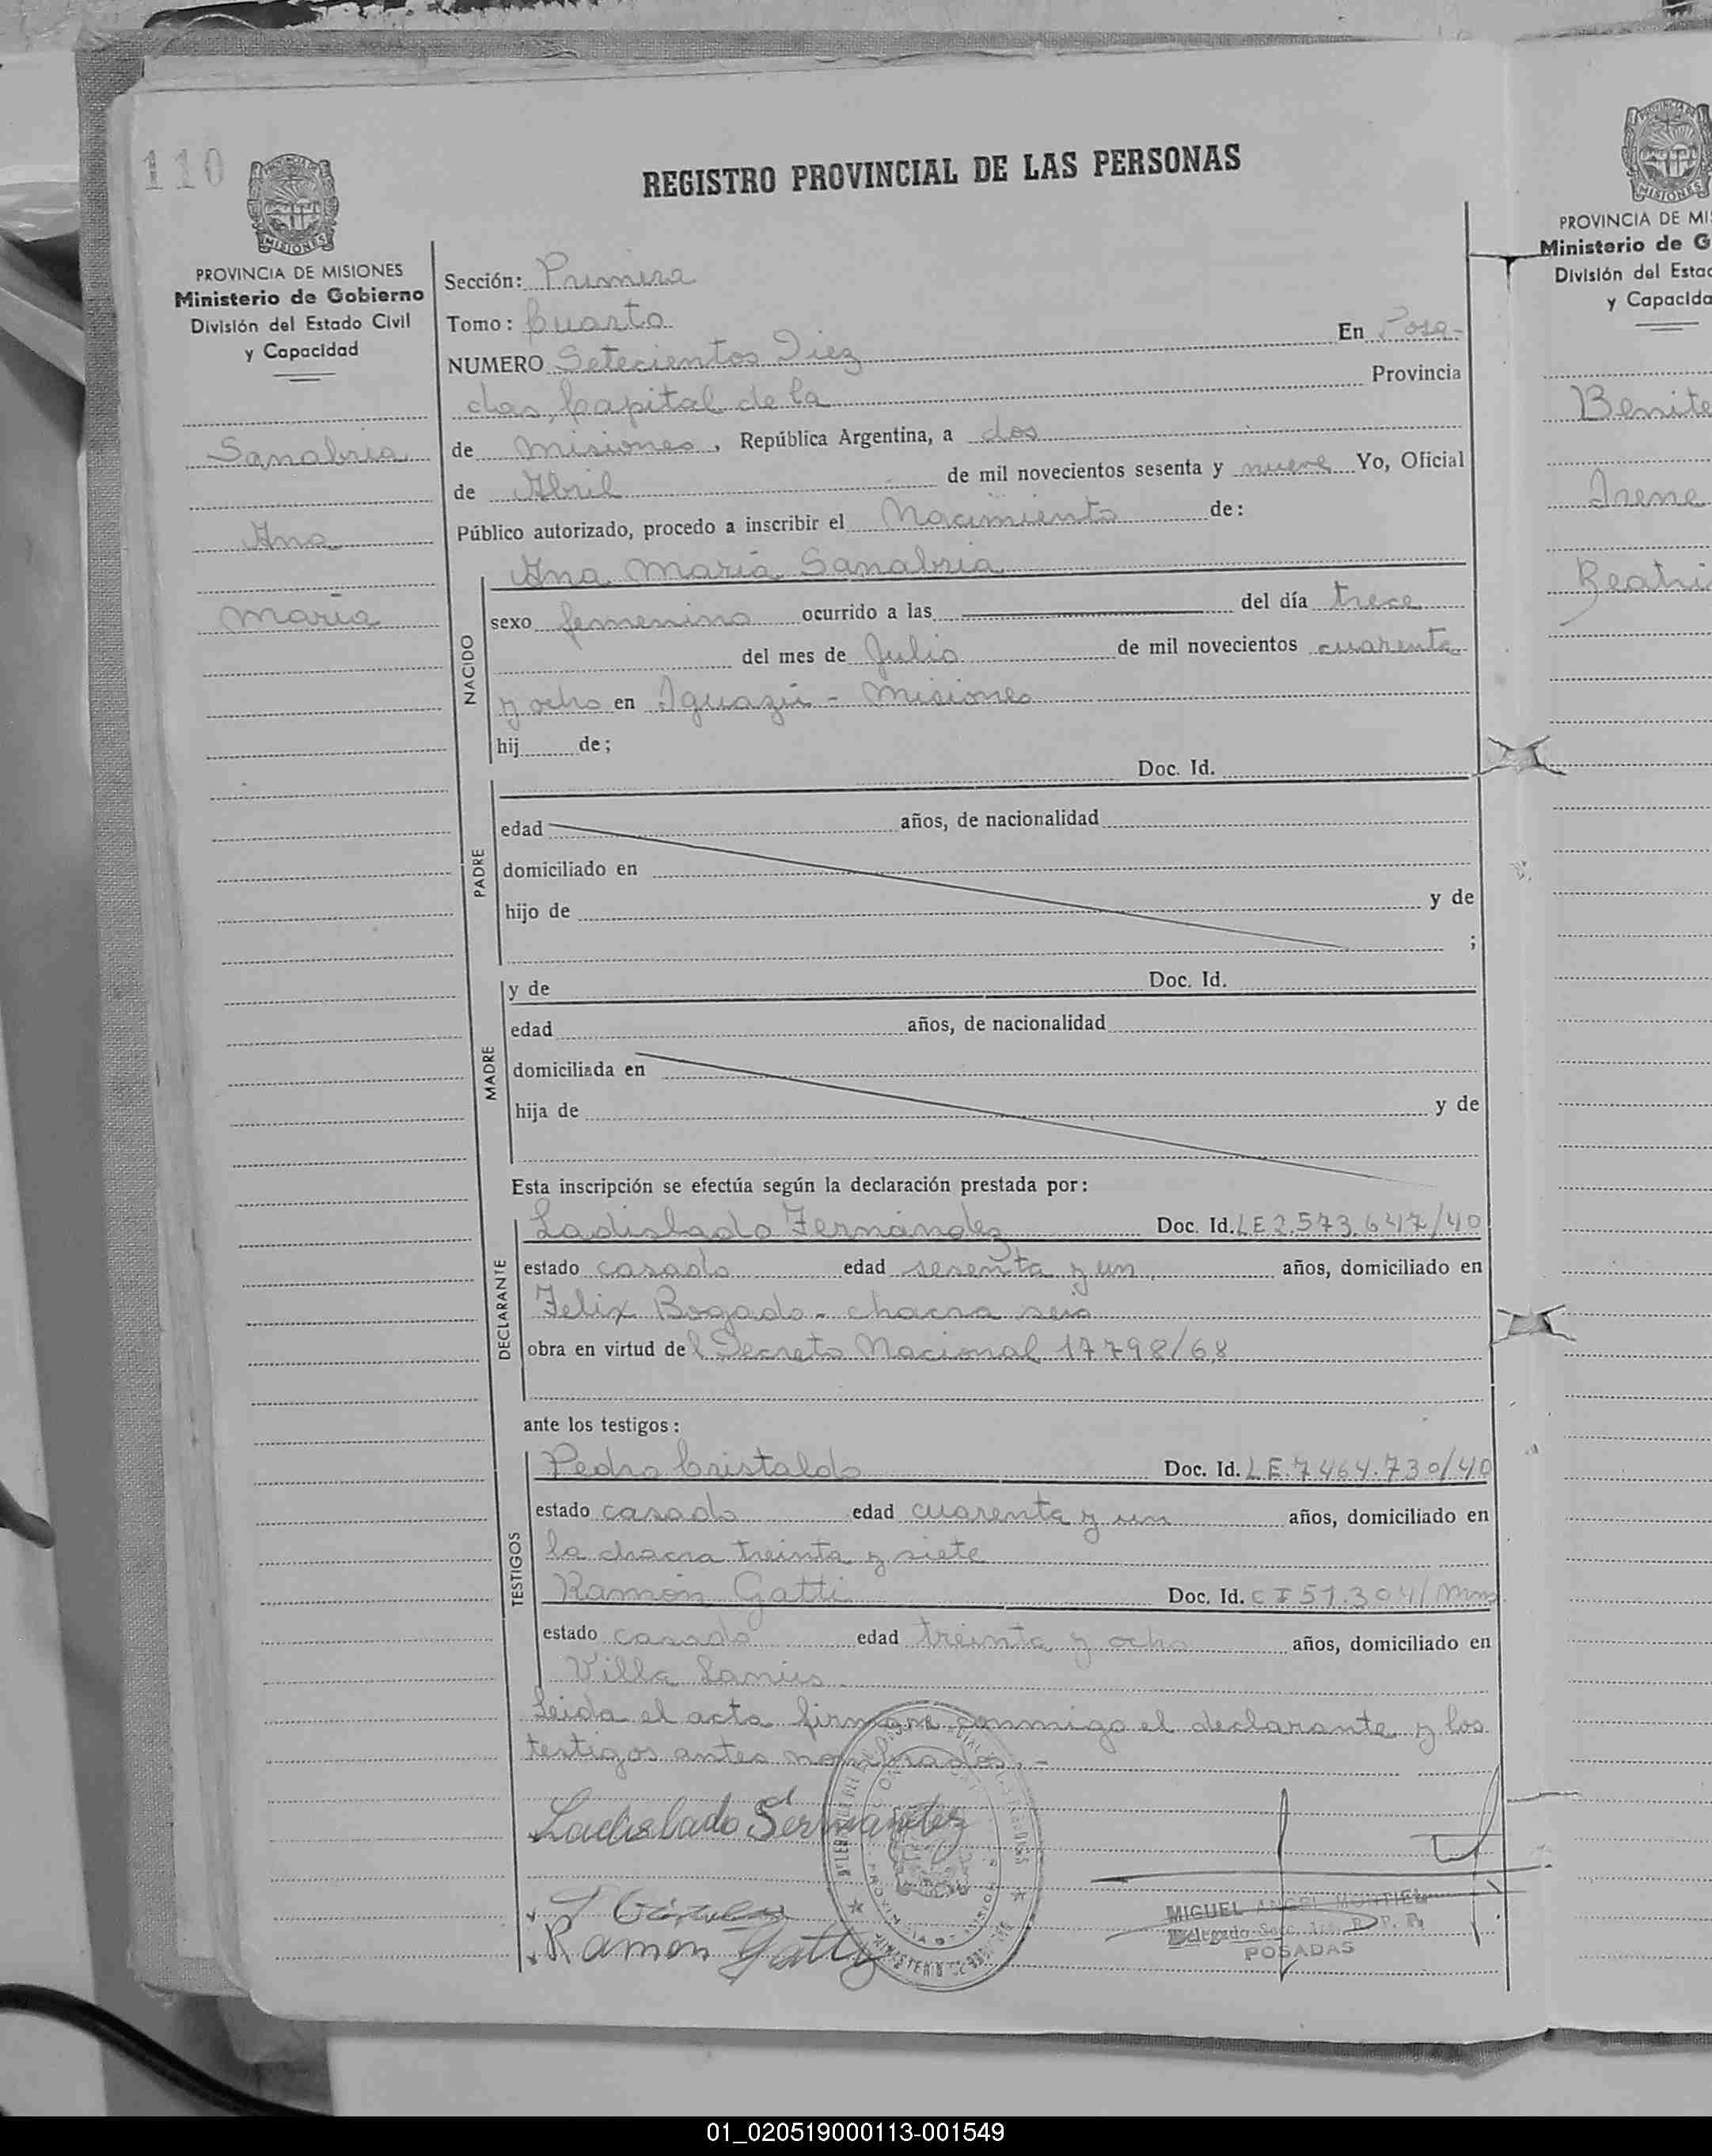 110
REGISTRO PROVINCIAL DE LAS PERSONAS
PROVINCIA DE MISIONES
Ministerio de Gobierno
División del Estado Civil
y Capacidad
Sanabria
Ana
María
Sección: Primera
Tomo: Cuarto
NUMERO Setecientos Diez En Posa-
das, Capital de la Provincia
de Misiones, República Argentina, a dos
de Abril de mil novecientos sesenta y nueve Yo, Oficial
Público autorizado, procedo a inscribir el Nacimiento de:
Ana María Sanabria
NACIDO
sexo femenino ocurrido a las del día trece
del mes de Julio de mil novecientos cuarenta
y ocho en Iguazú - Misiones
hij de;
Doc. Id.
PADRE
edad años, de nacionalidad
domiciliado en
hijo de y de
;
MADRE
y de Doc. Id.
edad años, de nacionalidad
domiciliada en
hija de y de
Esta inscripción se efectúa según la declaración prestada por:
DECLARANTE
Ladislado Fernández Doc. Id. LE 2.573.647/40
estado casado edad sesenta y un años, domiciliado en
Felix Bogado - chacra seis
obra en virtud del Decreto Nacional 17798/68
ante los testigos:
TESTIGOS
Pedro Cristaldo Doc. Id. LE.7464.730/40
estado casado edad cuarenta y un años, domiciliado en
la chacra treinta y siete
Ramón Gatti Doc. Id. CI 51.304/Mns
estado casado edad treinta y ocho años, domiciliado en
Villa Lanús
Leida el acta firman conmigo el declarante y los
testigos antes nombrados.-
Ladislado Fernández
Ramon Gatti
MIGUEL ANGEL MONTIEL
Delegado Secc. 1ra. R. P. P.
POSADAS
PROVINCIA DE MIS
Ministerio de G
División del Estad
y Capacida
Benite
Irene
Beatri
01_020519000113-001549